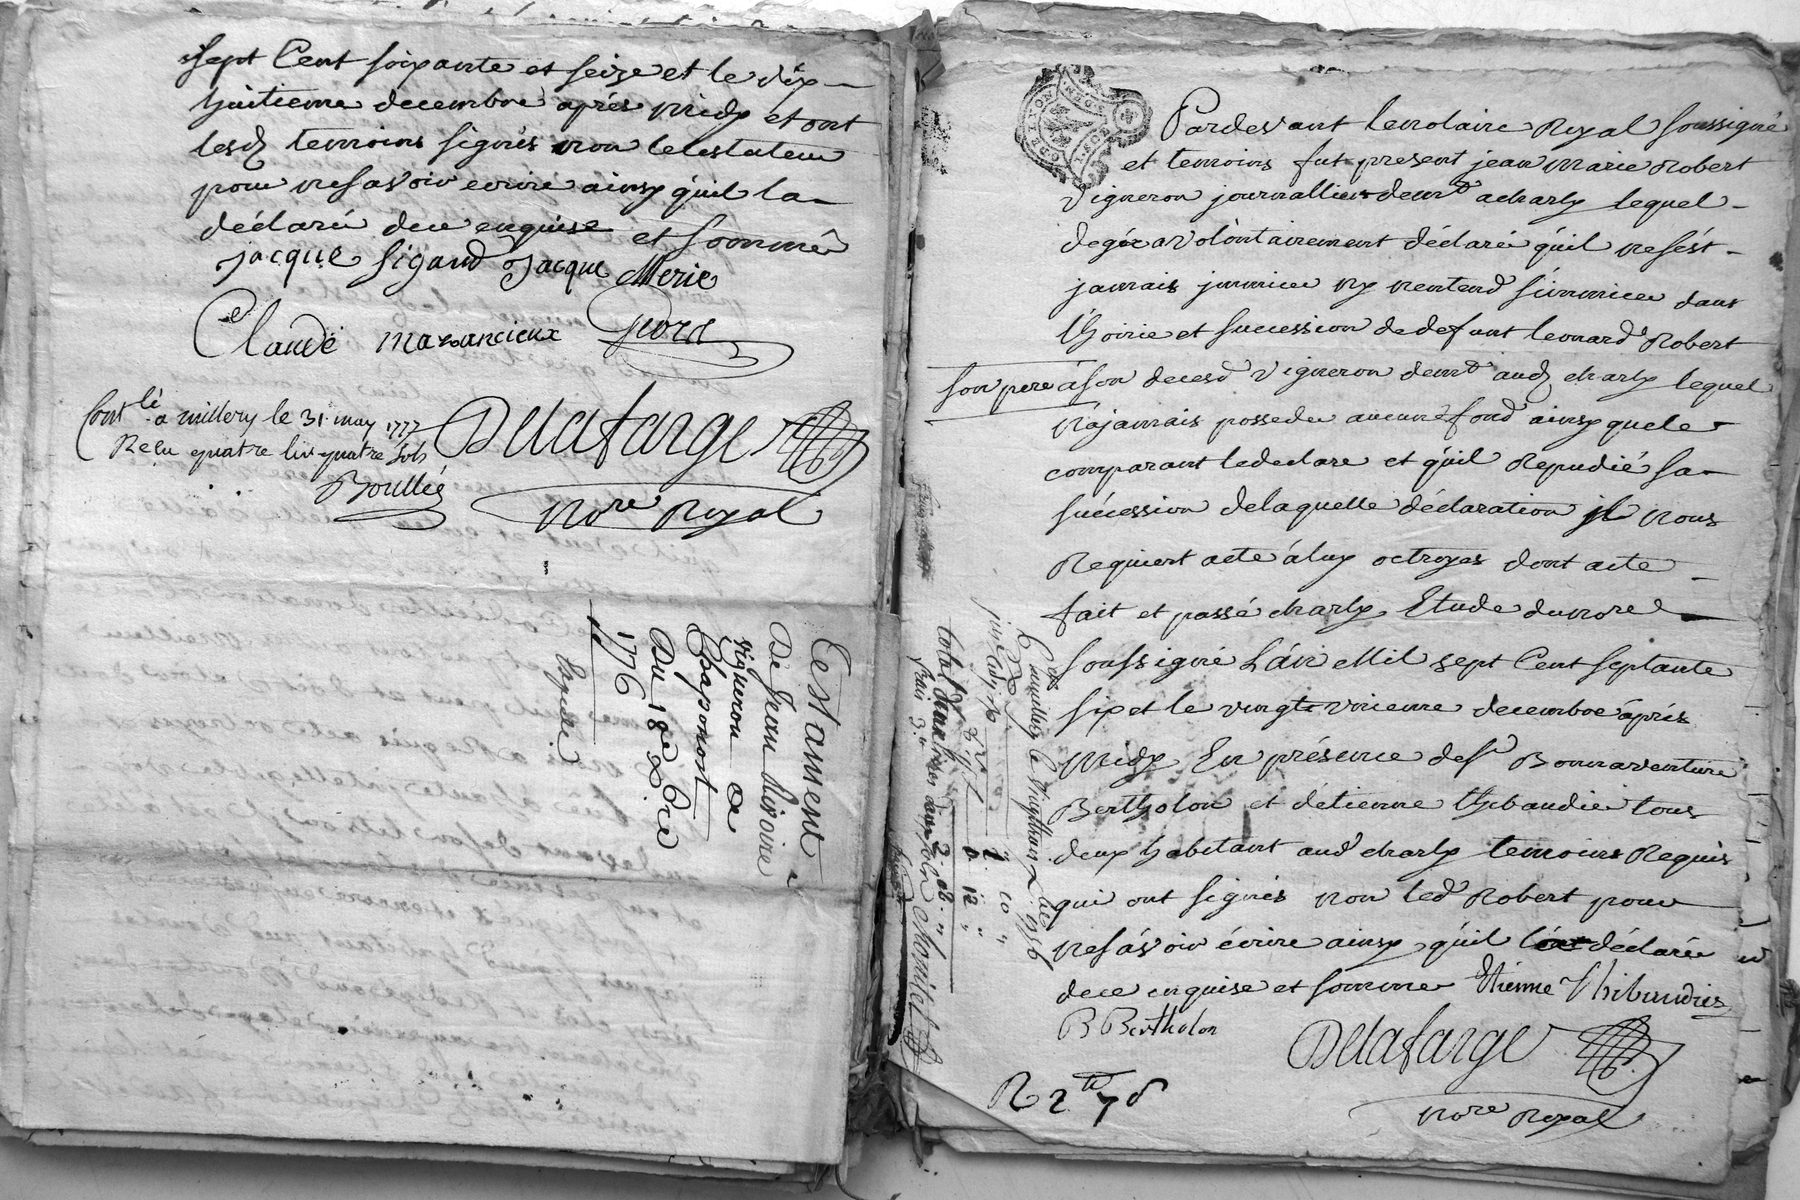 sept Cent soixante et seize et le dix
huitieme decembre aprés midy et ont
lesd temoins signés non le testateur
pour ne savoir ecrire ainsy quil la
déclaré de ce enquise et sommé
jacque sigaud Jacque Merie
Claude mazancieux Gora
Contlé a millery le 31 may 1777
Recu quatre liv quatre sols
Boullée
Delafarge
Nore Royal
Testament
De Jean
vigneron de
Chaponost
Du 18e Xbre
1776
GREL YON
Pardevant le notaire Royal soussigné
et temoins fut present jean marie Robert
vigneron journallier demt a charly lequel
de gré a volontairement déclaré quil ne sést
jamais jmmicer ny nentend simmicer dans
lhoirie et succession de defunt leonard Robert
son pere a son deces vigneron demt aud charly lequel
na jamais possedé aucune fond ainsy que le
comparant le declare et quil Repudié sa
succession de laquelle déclaration jl nous
Requiert acte a luy octroyes dont acte
fait et passé charly Etude du nore
soussigné Lán Mil sept Cent septante
six et le vingt deccembre áprés
midy En présence de sr Bonnaventure
Bertholon et détienne thibaudier tous
deux habitant aud charly temoins Requis
qui ont signés non led Robert pour
ne sávoir écrire ainsy quil déclaréé
de ce enquise et somme Etienne Thibaudier
B Bertholon
Delafarge
Nore Royal
R 2tt 7s